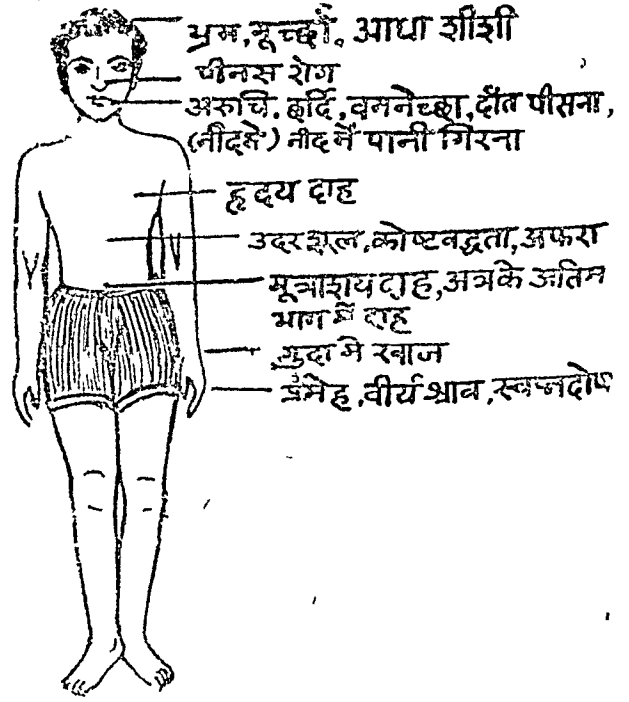 भ्रम, मूर्च्छा, आधा शीशी
पीनस रोग
अरुचि, छर्दि, वमनेच्छा, दाँत पीसना,
(नीदमे) नीद में पानी गिरना
हृदय दाह
उदर शूल, कोष्टवद्धता, अफरा
मूत्राशय दाह, अत्रके अतिम
भाग में दाह
गुदा मे खाज
प्रमेह, वीर्य श्राव, स्वप्नदोष